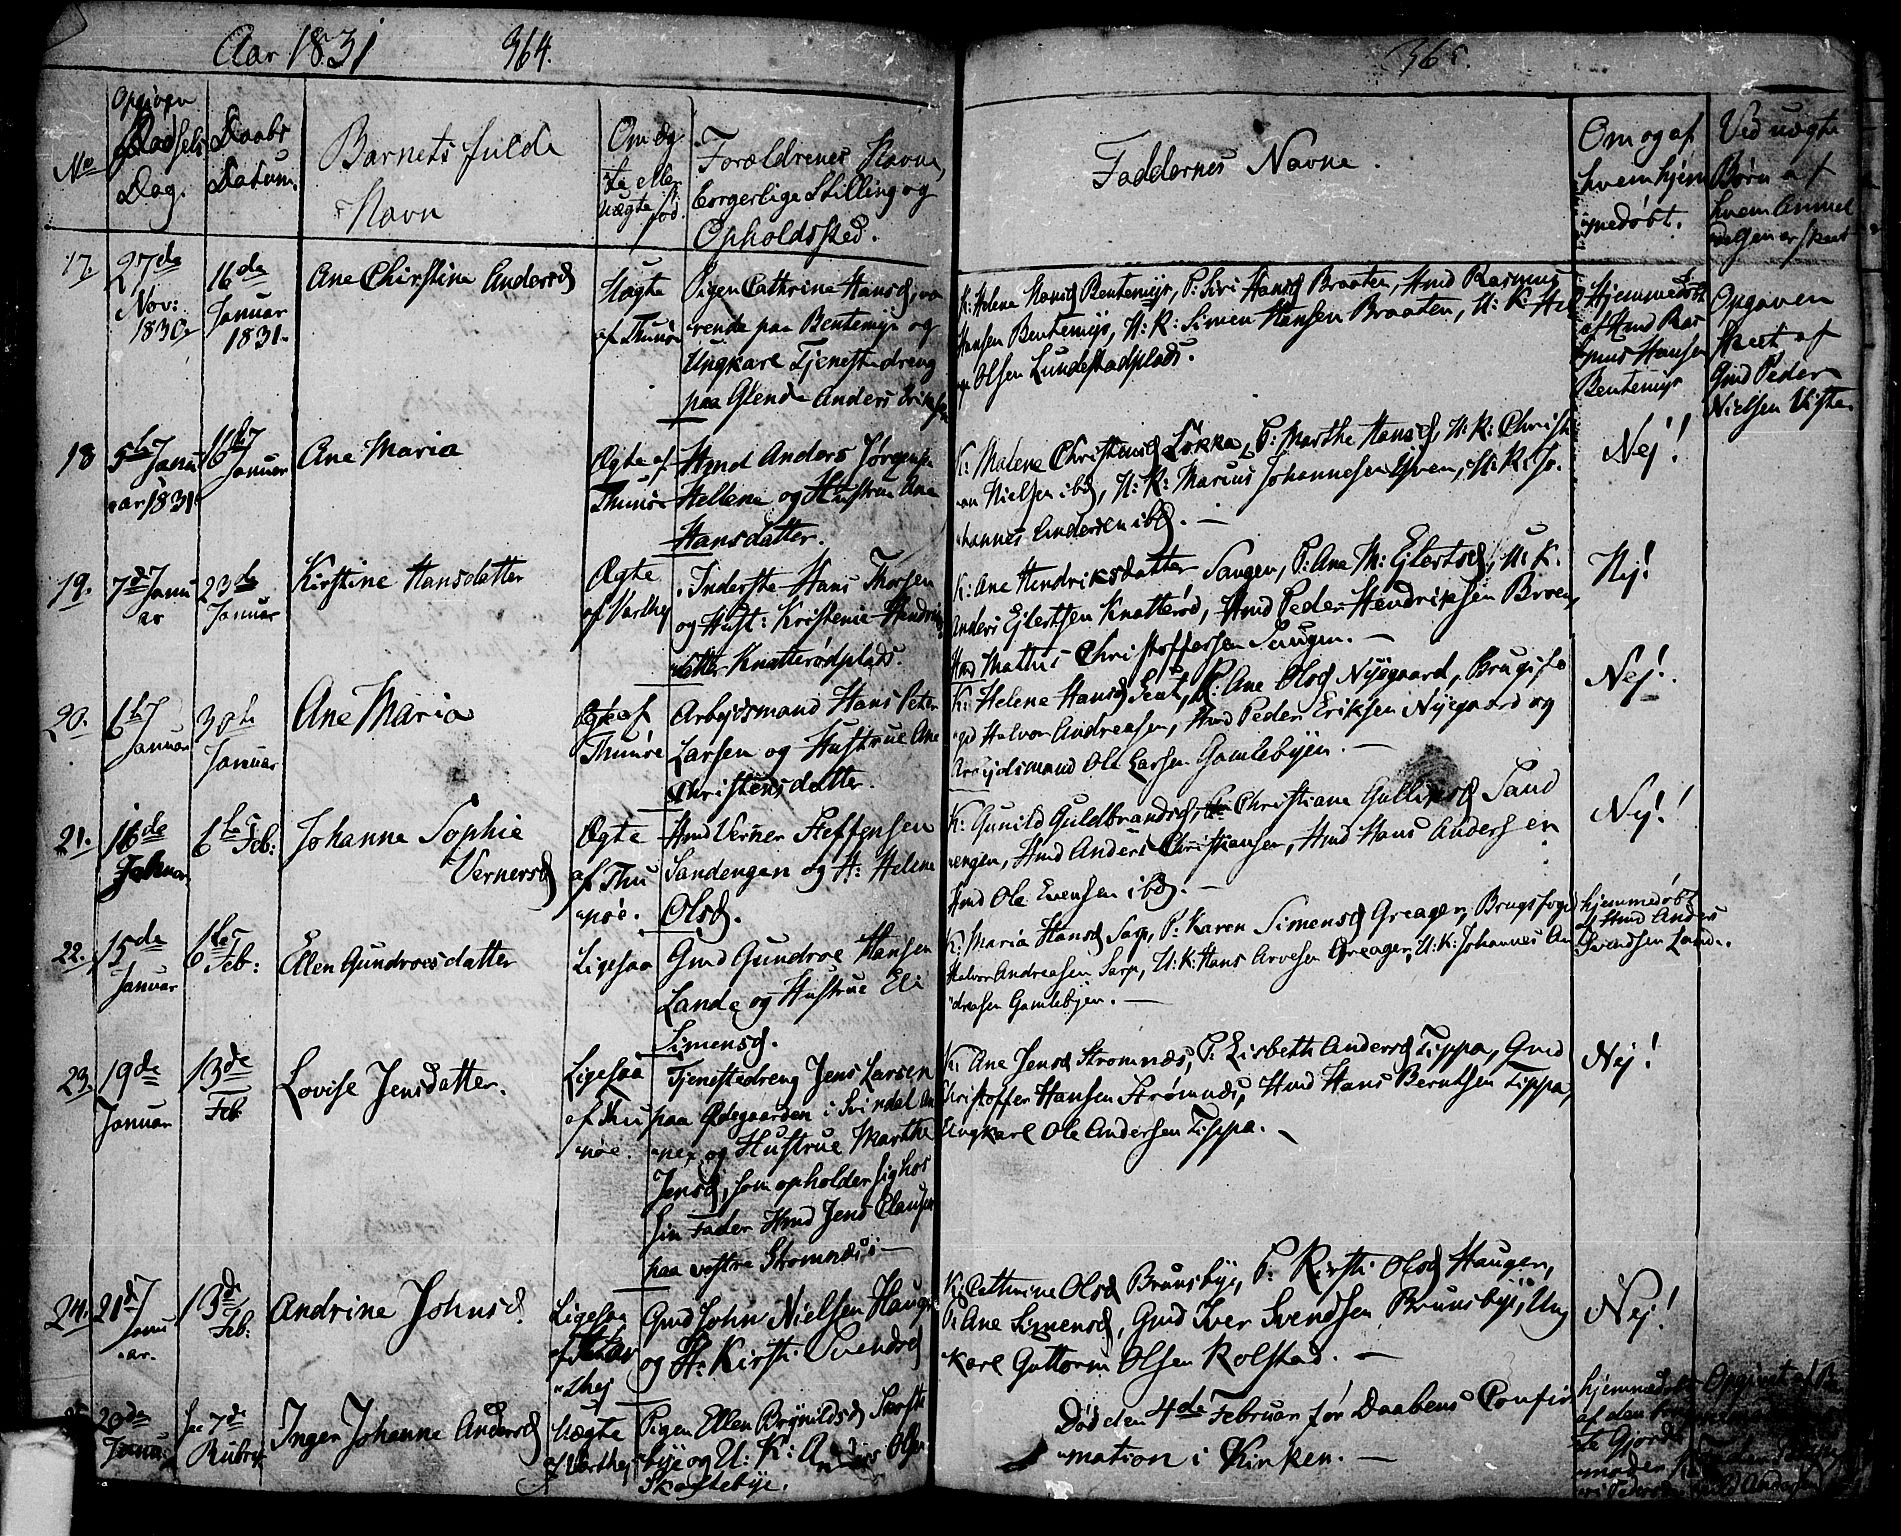 Aar 1831
364.
365.
No
Opgiven
Fødsels
Dag.
Daabs
Datum.
Barnets fulde
Navn
Om Æg
te eller
Uægte fød.
Forældrenes Navne,
Borgerlige Stilling og
Opholdssted.
Faddernes Navne.
Om og af
hvem hjem
medøbt.
Ved uægte
Børn af
hvem Anmel
delsen er skeet
17.
27de
Nov:
1830.
16de
Januar
1831.
Ane Christine Andersd
Uægte
af Thunøe
Pigen Cathrine Hansd, væ
rende paa Bentemyr og
Ungkarl Tjenestedreng
paa Glende Anders Eriksen
K: Helene Hansd Bentemyr, P. Siri Hansd Braaten, Hmd Rasmus
Hansen Bentemyr, U: K: Simen Hansen Braaten, U: K: Hel
Olsen Lundestadplads.
Hjemmedøbt
af Hmd Ras
mus Hansen
Bentemyr
Opgaven
skeet af
Gmd Peder
Nielsen Viste.
18
5te Janu
ar 1831
16de
Januar
Ane Maria
Ægte af
Thunøe
Hmd Anders Jørgensen
Hellene og Hustrue Ane
Hansdatter.
K: Malene Christensd Løkka, P: Marthe Hansd, U: K: Christi
an Nielsen ibd, U: K: Marius Johannesen Yven, U: K: Jo
hannes Andersen ibd. —
Nej!
19.
7de Janu
ar
23de
Januar
Kirstine Hansdatter
Ægte
af Varthej
Inderste Hans Thorsen
og Hust: Kristenie Hendriks
datter Knatterødplads.
K: Ane Hendriksdatter Saugen, P: Ane M: Ejlertsd, U: K.
Anders Ejlertsen Knatterød, Hmd Peder Hendriksen Broen,
Hmd Mathis Christoffersen Saugen. —
Nej!
20.
6te
Januar
30te
Januar
Ane Maria
Ægte af
Thunøe
Arbejdsmand Hans Peter
Larsen og Hustrue Ane
Christensdatter.
K: Helene Hansd, P: Ane Olsd Nyegaard, Brugsfo
ged Halvor Andreasen, Hmd Peder Eriksen Nyegaard og
Arbejdsmand Ole Larsen Gamlebyen. —
Nej!
21.
16de
Januar
6te Feb:
Johanne Sophie
Vernersd
Ægte
af Thu
nøe.
Hmd Verner Steffensen
Sandengen og H: Helene
Olsd.
K: Gunild Guldbrandsd, Christiane Gulliksd Sand
engen, Hmd Anders Christiansen, Hmd Hans Andersen
Hmd Ole Evensen ibd. —
Nej!
22.
15de
Januar
6te
Feb:
Ellen Gundroesdatter
Ligesaa
Gmd Gundroe Hansen
Lande og Hustrue Eli
Simensd.
K: Maria Hansd Sarp, P. Karen Simensd Greager, Brugsfoged
Halvor Andreasen Sarp, U: K: Hans Arvesen Greager, U: K: Johannes An
dreasen Gamlebyen. —
hjemmedøbt
af Hmd Anders
Svendsen Lande.
23.
19de
Januar
13de
Feb
Lovise Jensdatter.
Ligesaa
af Thu
nøe.
Tjenestedreng Jens Larsen
paa Ødegaarden i Svindal An
nex og Hustrue Marthe
Jensd, som opholder sig hos
sin Fader Hmd Jens Clausen
paa vestre Strømnæs. —
K: Ane Jensd Strømnæs, P. Lisbeth Andersd Tippa, Gmd
Christoffer Hansen Strømnæs, Hmd Hans Berntsen Tippa,
Ungkarl Ole Andersen Tippa. —
Nej!
24.
21de
Janu
ar.
13de
Feb:
Andrine Johnsd.
Ligesaa
af Var
thej
Gmd John Nielsen Hauge
og H: Kirsti Svendsd
K: Cathrine Olsd Brunsbye, P. Kirsti Olsd Haugen,
P. Ane Simensd, Gmd Iver Svendsen Brunsbye, Ung
karl Guttorm Olsen Rolstad. —
Nej!
20de
Januar
see 7de
Rubrik
Inger Johanne Andersd
Uægte
af Varthej
Pigen Ellen Brynildsd Skofte
bye og U: K: Anders Olsen
Skoftebye.
Død den 4de Februar før Daabens Confir
mation i Kirken. —
hjemmedøbt
af den
Gjord
moder
Opgivet af